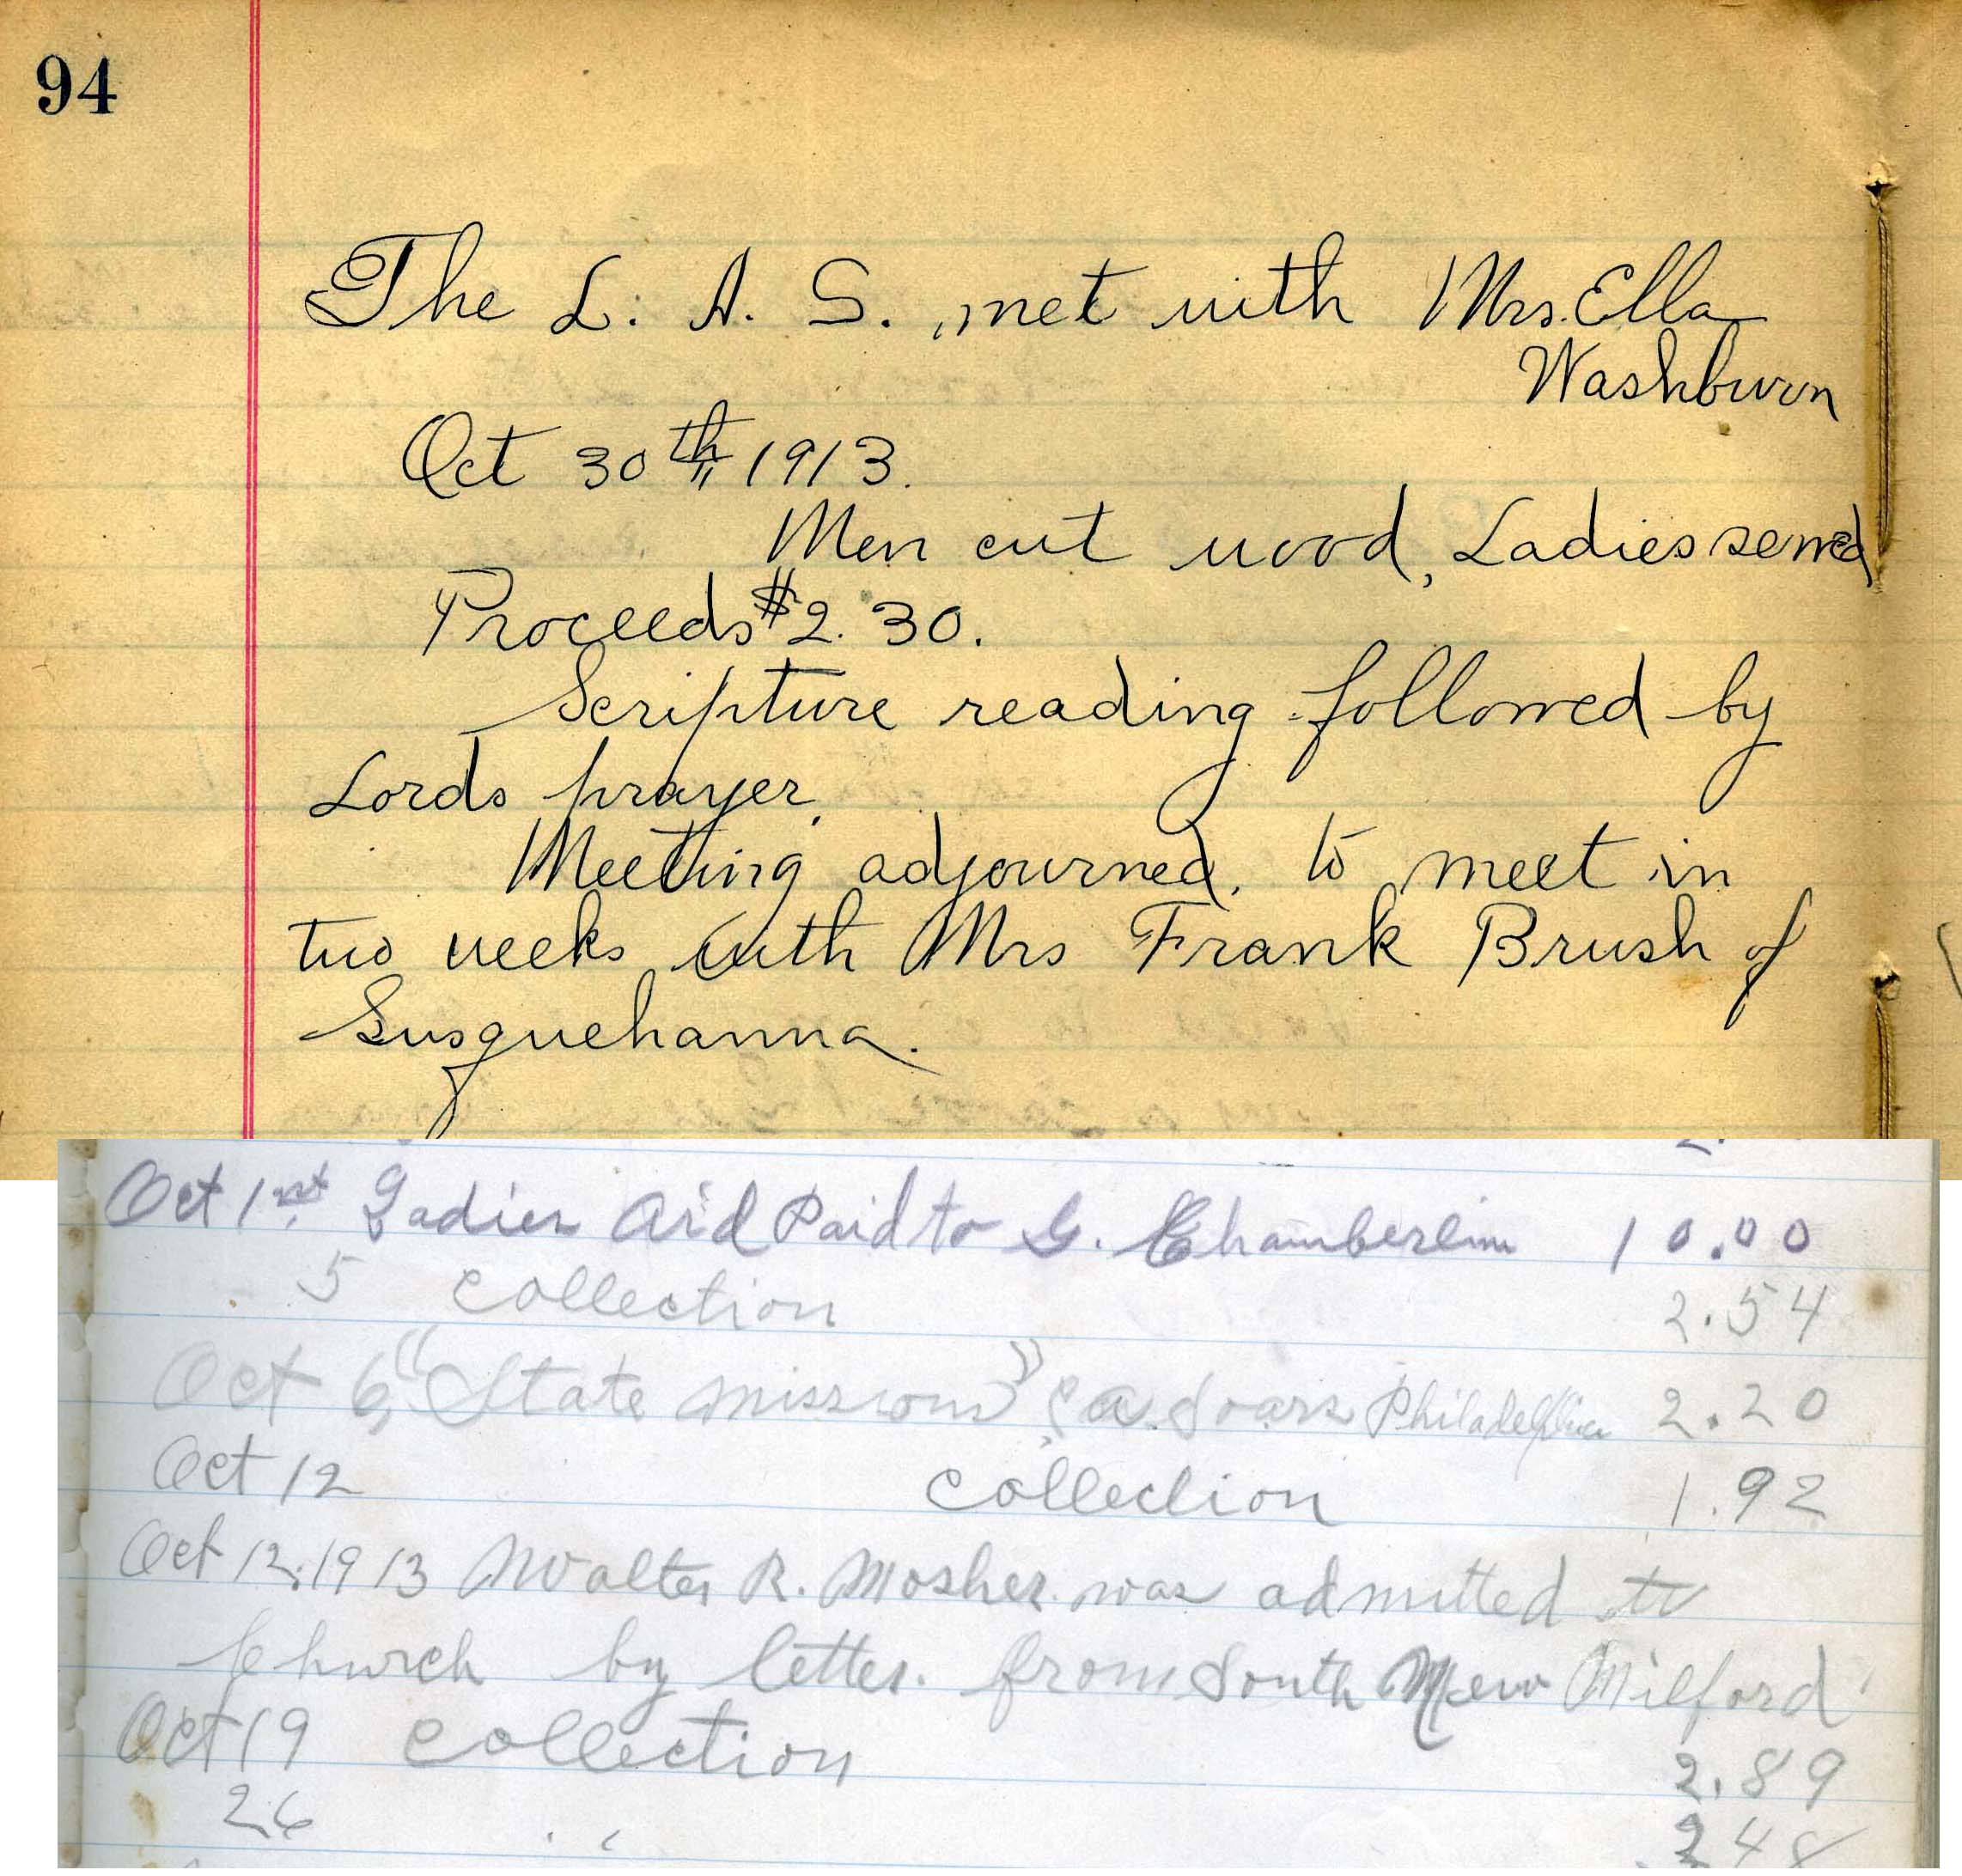 94
The L. A. S. met with Mrs. Ella
Washburn
Oct 30th 1913.
Men cut wood, Ladies sewed
Proceeds $2.30.
Scripture reading followed by
Lords prayer.
Meeting adjourned, to meet in
two weeks with Mrs Frank Brush of
Susquehanna.
Oct 1st Ladies Aid Paid to G. Chamberlin 10.00
5 collection 2.54
Oct 6, "State missions" Soars Philadelphia 2.20
Oct 12 collection 1.92
Oct 12, 1913 Walter R. Mosher was admitted to
Church by letter. from South New Milford
Oct 19 collection 2.89
26 " 2 48